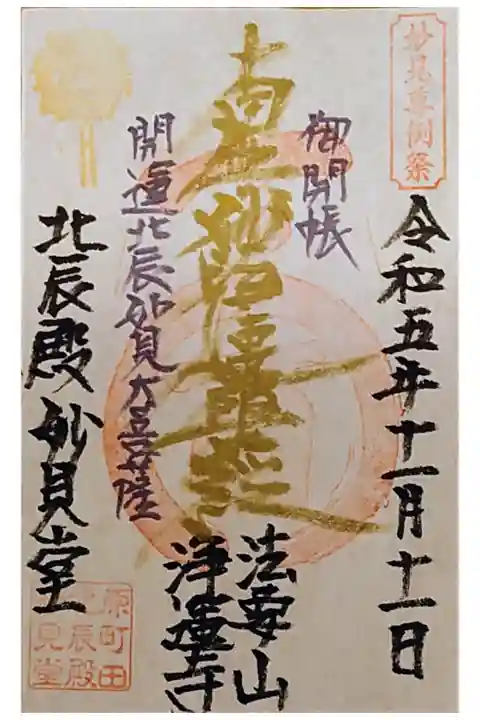 妙見尊例祭
令和五年十一月十一日
御開帳
南無妙法蓮華経
法要山
浄運寺
開運北辰妙見大菩薩
北辰殿妙見堂
原町田
北辰殿
見堂